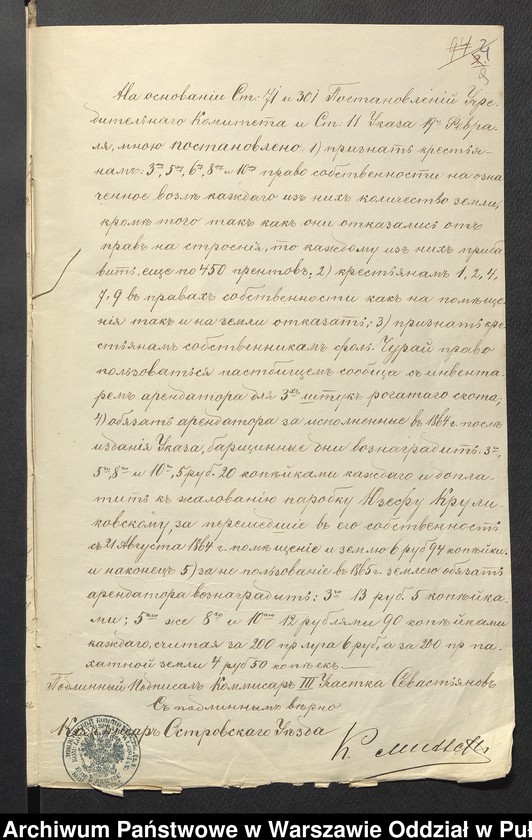 На основаніи Ст. 71 и 301 Постановленій Учре-
дительнаго Комитета и Ст. 11 Указа 19го Февра-
ля, мною постановлено. 1) признать крестья-
намъ: 3му, 5му, 6му, 8му и 10му право собственности на озна
ченное возлѣ каждаго изъ нихъ количество земли,
кромѣ того такъ какъ они отказались отъ
правъ на строенія, то каждому изъ нихъ приба
вить, еще по 450 прентовъ; 2) крестьянамъ 1, 2, 4,
7, 9 въ правахъ собственности какъ на помѣще-
нія такъ и на земли отказать; 3) признать кре
стьянамъ собственникамъ фоль. Чурай право
пользоваться пастбищемъ сообща съ инвента-
ремъ арендатора для 3хъ штукъ рогатаго скота;
4) обязать арендатора за исполненные въ 1864 г. послѣ
изданія Указа, барщинные дни вознаградить: 3му,
5му, 8му и 10му, 5 руб. 20 копѣйками каждаго и допла-
тить къ жалованію паробку Юзефу Крули-
ковскому, за перешедшіе въ его собственность
съ 21 Августа 1864 г. помѣщеніе и землю 6 руб 94 копѣйки.
и наконецъ 5) за не пользованіе въ 1865 г. землею обязать
арендатора вознаградить: 3го 13 руб. 5 копѣйка-
ми; 5го же 8го и 10го 12 рублями 90 копѣйками
каждаго, считая за 200 пр луга 6 руб, а за 200 пр па-
хатной земли 4 руб 50 копѣекъ.
Подлинный Подписалъ Коммисаръ III Участка Севастьяновъ
Съ подлиннымъ вѣрно
Коммисаръ Островскаго Уѣзда
Archiwum Państwowe w Warszawie Oddział w Pu